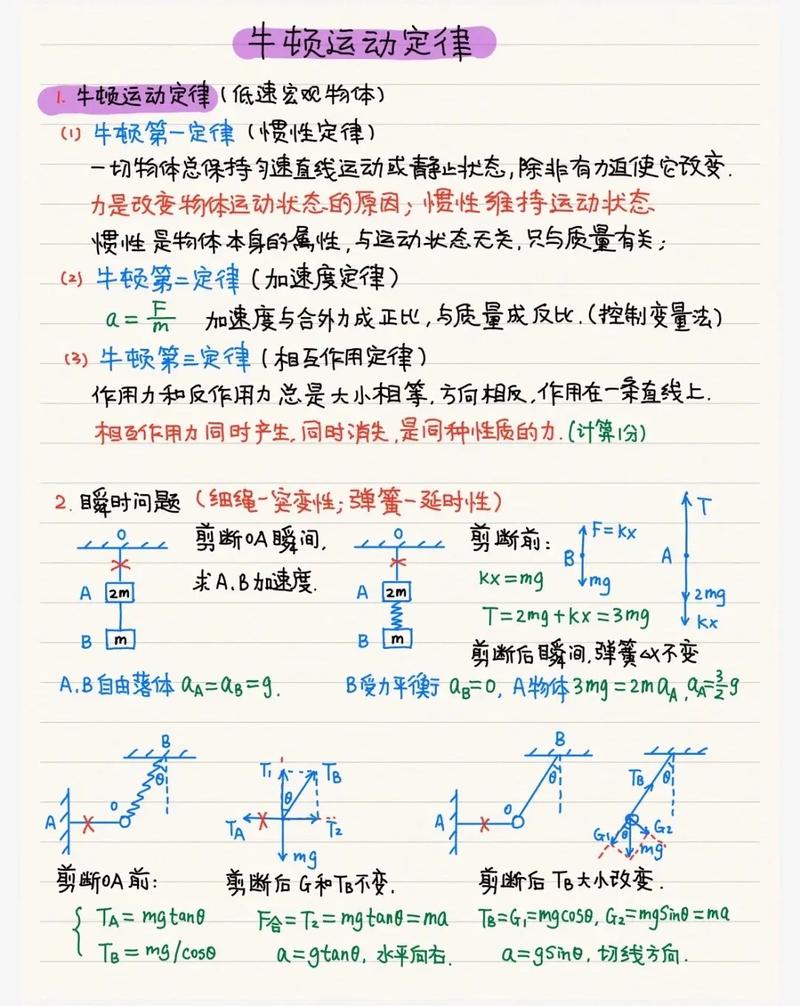 牛顿运动定律
1. 牛顿运动定律(低速宏观物体)
(1) 牛顿第一定律(惯性定律)
一切物体总保持匀速直线运动或静止状态,除非有力迫使它改变.
力是改变物体运动状态的原因;惯性维持运动状态
惯性是物体本身的属性,与运动状态无关,只与质量有关;
(2) 牛顿第二定律(加速度定律)
a=F/m 加速度与合外力成正比,与质量成反比.(控制变量法)
(3) 牛顿第三定律(相互作用定律)
作用力和反作用力总是大小相等,方向相反,作用在一条直线上.
相互作用力同时产生,同时消失,是同种性质的力.(计算1分)
2. 瞬时问题(细绳-突变性;弹簧-延时性)
O
A 2m
B m
剪断OA瞬间,
求A.B加速度.
A.B自由落体 aA=aB=g.
O
A 2m
B m
剪断前:
kx=mg
T=2mg+kx=3mg
B F=kx mg
A T 2mg kx
剪断后瞬间,弹簧△x不变
B受力平衡 aB=0, A物体3mg=2maA, aA=3/2g
B
θ
A O
T1 TB
θ
TA T2
mg
B
θ
A O
TB θ
G1 θ G2
mg
剪断OA前:
TA=mgtanθ
TB=mg/cosθ
剪断后G和TB不变.
F合=T2=mgtanθ=ma
a=gtanθ, 水平向右.
剪断后TB大小改变.
TB=G1=mgcosθ, G2=mgsinθ=ma
a=gsinθ, 切线方向.